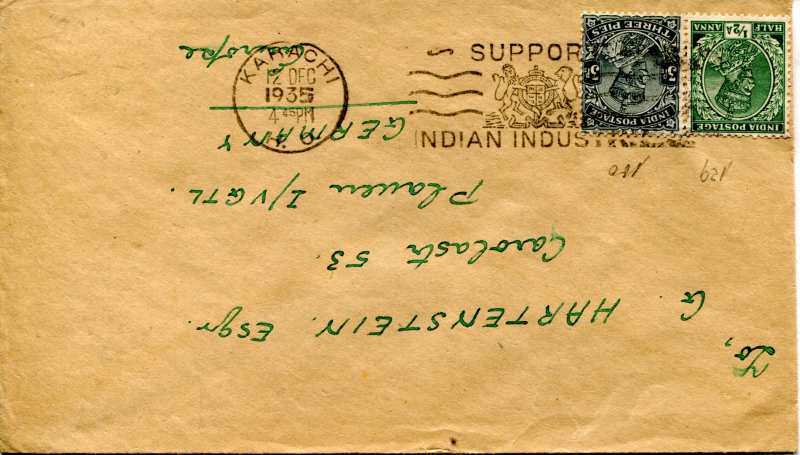 KARACHI
12 DEC
1935
4 45 PM
G.P.O.
SUPPOR
INDIAN INDUST
INDIA POSTAGE
THREE PIES
INDIA POSTAGE
1/2A
HALF ANNA
To,
G. HARTENSTEIN. Esqr.
Carolastr 53.
Plauen I/VGTL.
GERMANY
Europe